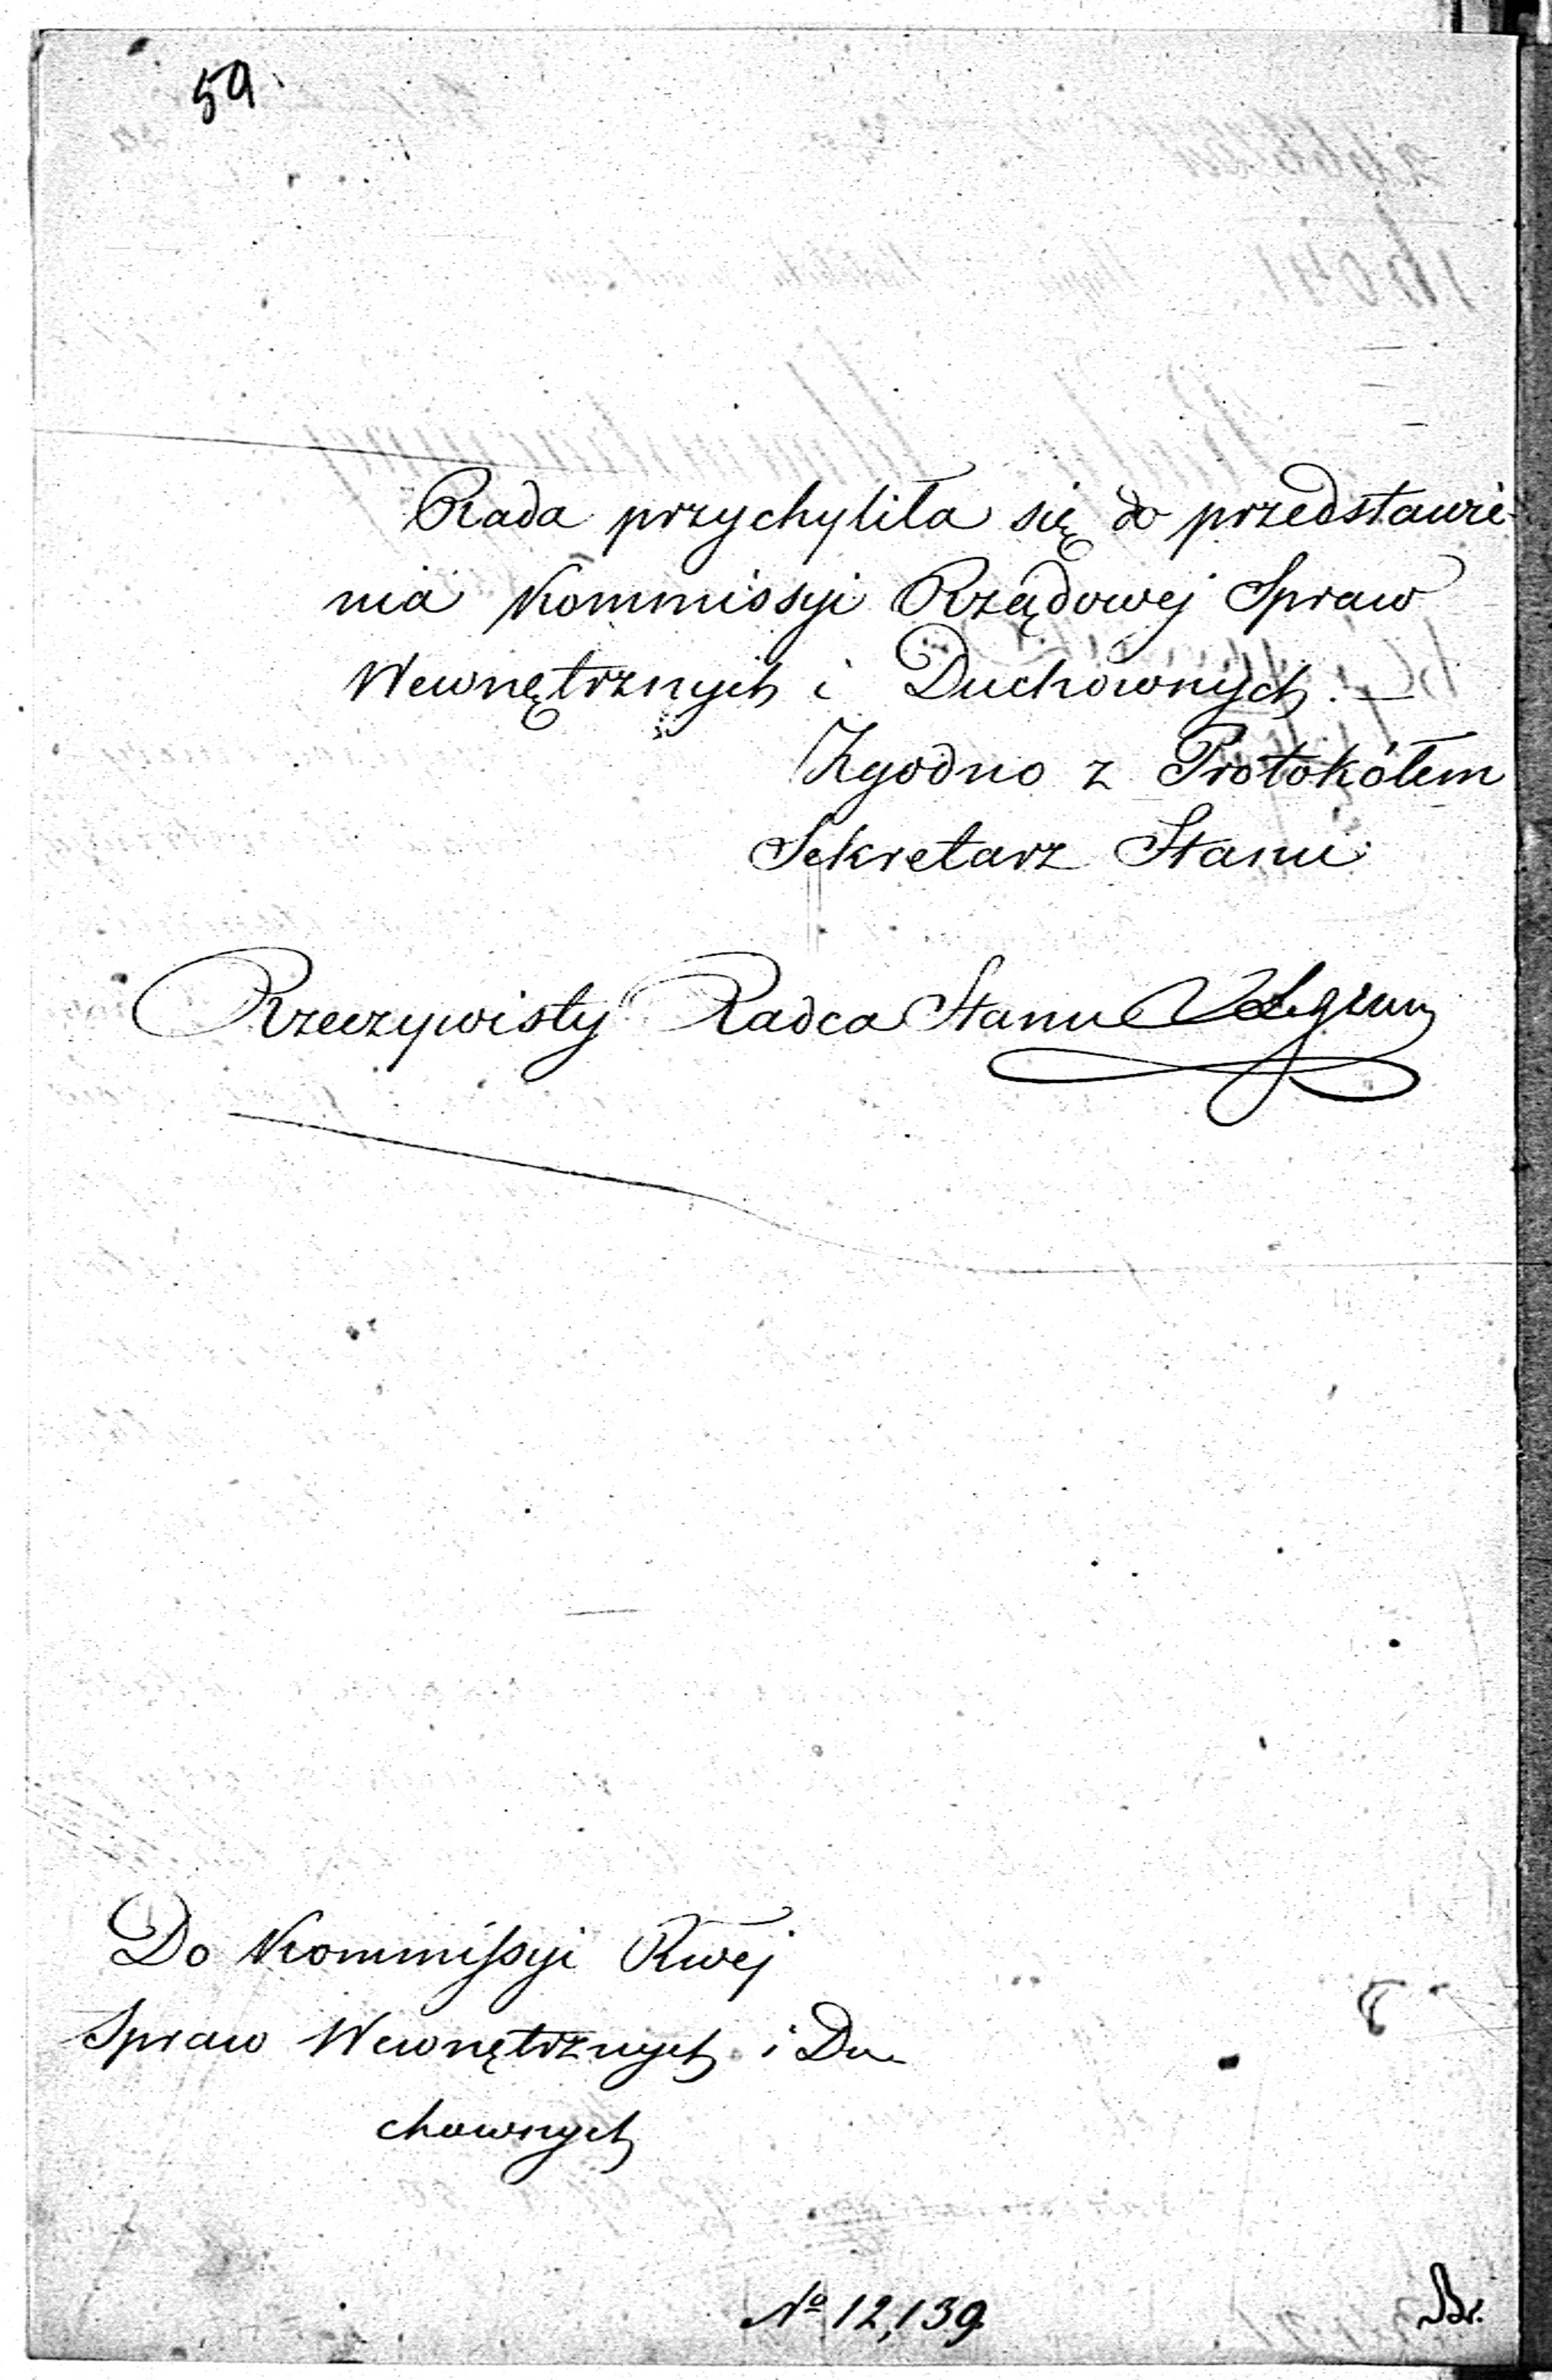 59.
Rada przychyliła się do przedstawie-
nia Kommissyi Rządowej Spraw
Wewnętrznych i Duchównych. —
Zgodno z Protokółem
Sekretarz Stanu
Rzeczywisty Radca Stanu
Do Kommissyi Rwej
Spraw Wewnętrznych i Du-
chownych
No 12,139
Br.